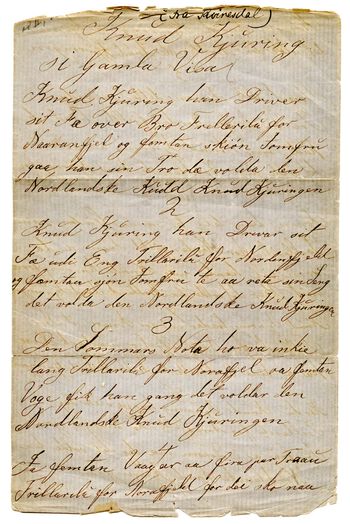 (fra Seiresdal)
Knud Kjuring
si Gamla Visa
Knud Kjuring han Driver
sit Fæ over Bro Trillerili for
Naaranfjel og femtan skiön Jomfru
gaa han sin Tro dæ volda den
Nordlandske Kudd Knud Kjuringen
2
Knud Kjuring han Drivar sit
Fæ udi Eng Trillerili for Nordenfjeld
og femtan sjön Jomfru te aa reia sin Seng
det volda den Nordlandske Knud Kjuringen
3
Den Sommars Nota ho va inkie
lang Trillerili for Norafjel aa femtan
Voge fik han gang det voldar den
Nordlandske Knud Kjuringen
4
Ja femtan Vaagar aa fira par
Trillerili for Norafjeld for dei sko naa